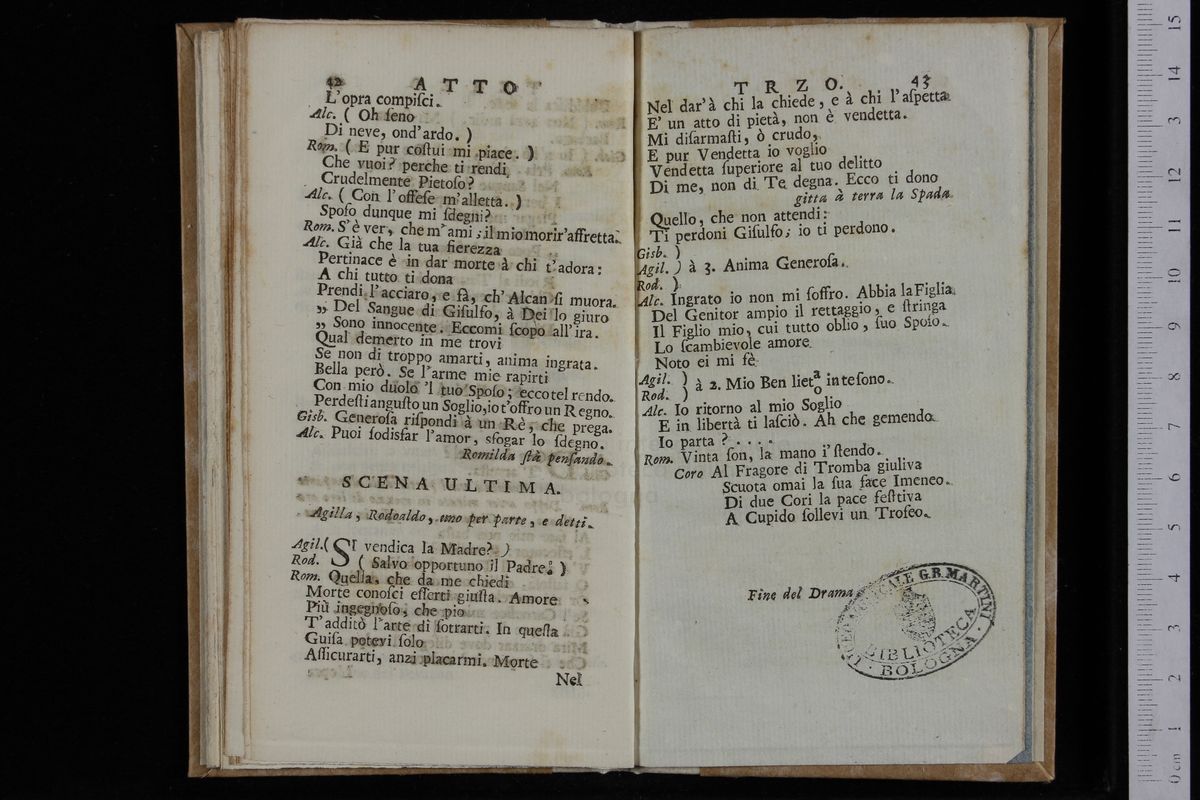 42 ATTO
L'opra compiſci.
Alc. ( Oh ſeno
Di neve, ond'ardo. )
Rom. ( E pur coſtui mi piace. )
Che vuoi? perche ti rendi
Crudelmente Pietoſo?
Alc. ( Con l'offeſe m'alletta. )
Spoſo dunque mi ſdegni?
Rom. S'è ver, che m'ami; il mio morir'affretta.
Alc. Già che la tua fierezza
Pertinace è in dar morte à chi t'adora:
A chi tutto ti dona
Prendi l'acciaro, e fà, ch'Alcan ſi muora.
„ Del Sangue di Giſulfo, à Dei lo giuro
„ Sono innocente. Eccomi ſcopo all'ira.
Qual demerto in me trovi
Se non di troppo amarti, anima ingrata.
Bella però. Se l'arme mie rapirti
Con mio duolo 'l tuo Spoſo; ecco tel rendo.
Perdeſti anguſto un Soglio, io t'offro un Regno.
Gisb. Generoſa riſpondi à un Rè, che prega.
Alc. Puoi ſodisfar l'amor, sfogar lo ſdegno.
Romilda ſtà penſando.
SCENA ULTIMA.
Agilla, Rodoaldo, uno per parte, e detti.
Agil. ( SI vendica la Madre? )
Rod. ( Salvo opportuno il Padre? )
Rom. Quella, che da me chiedi
Morte conoſci eſſerti giuſta. Amore
Più ingegnoſo, che pio
T'additò l'arte di ſotrarti. In queſta
Guiſa potevi ſolo
Aſſicurarti, anzi placarmi. Morte
Nel
TRZO. 43
Nel dar'à chi la chiede, e à chi l'aſpetta
E' un atto di pietà, non è vendetta.
Mi diſarmaſti, ò crudo,
E pur Vendetta io voglio
Vendetta ſuperiore al tuo delitto
Di me, non di Te degna. Ecco ti dono
gitta à terra la Spada
Quello, che non attendi:
Ti perdoni Giſulfo; io ti perdono.
Gisb. )
Agil. ) à 3. Anima Generoſa.
Rod. )
Alc. Ingrato io non mi ſoffro. Abbia la Figlia
Del Genitor ampio il rettaggio, e ſtringa
Il Figlio mio, cui tutto oblio, ſuo Spoſo.
Lo ſcambievole amore
Noto ei mi fè
Agil. ) à 2. Mio Ben lietao inteſono.
Rod. )
Alc. Io ritorno al mio Soglio
E in libertà ti laſciò. Ah che gemendo
Io parta? . . . .
Rom. Vinta ſon, la mano i' ſtendo.
Coro Al Fragore di Tromba giuliva
Scuota omai la ſua face Imeneo.
Di due Cori la pace feſtiva
A Cupido ſollevi un Trofeo.
Fine del Drama
LICEO MUSICALE G.B. MARTINI
BIBLIOTECA
BOLOGNA